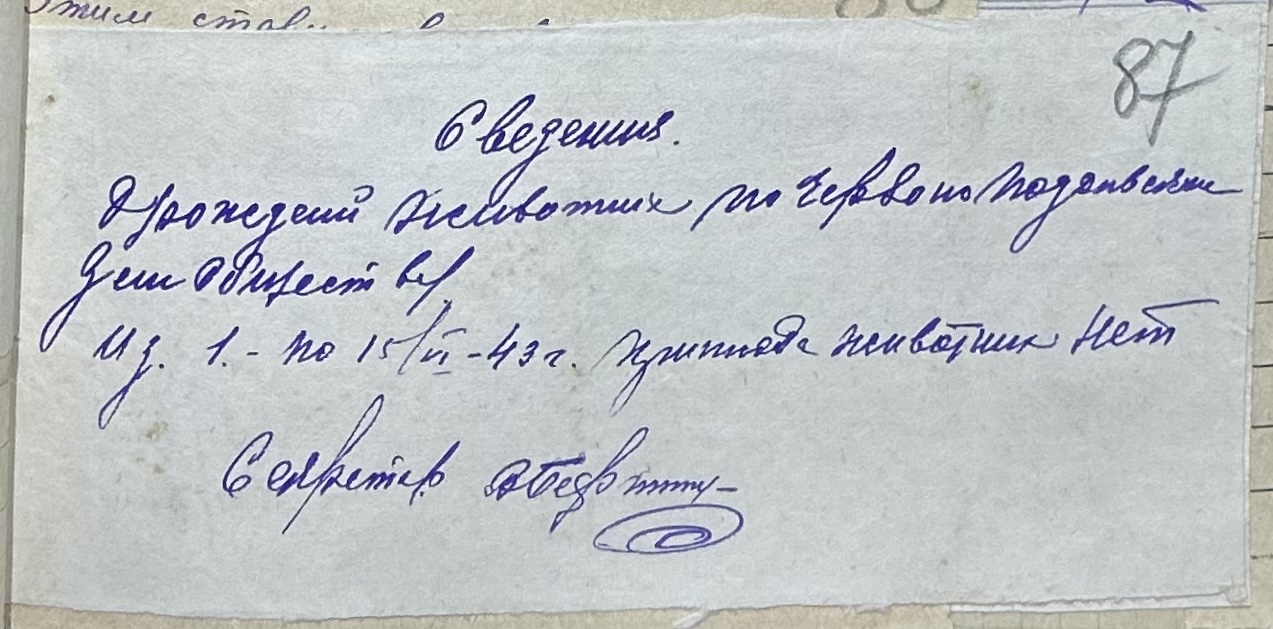 этим
87
Сведения.
О рождений животних по Червоно Подольской
Зем Обществ/
Из. 1. - по 15/VI - 43 г. приплода животних Нет
Секретарь